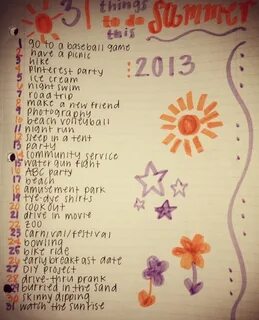 31 things to do this SUMMER
2013
1 go to a baseball game
2 have a picnic
3 hike
4 pinterest party
5 ice cream
6 night swim
7 road trip
8 make a new friend
9 photography
10 beach volleyball
11 night run
12 sleep in a tent
13 party
14 community service
15 water gun fight
16 ABC party
17 beach
18 amusement park
19 tye-dye shirts
20 cookout
21 drive in movie
22 zoo
23 carnival/festivas
24 bowling
25 bike ride
26 early breakfast date
27 DIY project
28 drive-thru prank
29 burried in the sand
30 skinny dipping
31 watch the sunrise